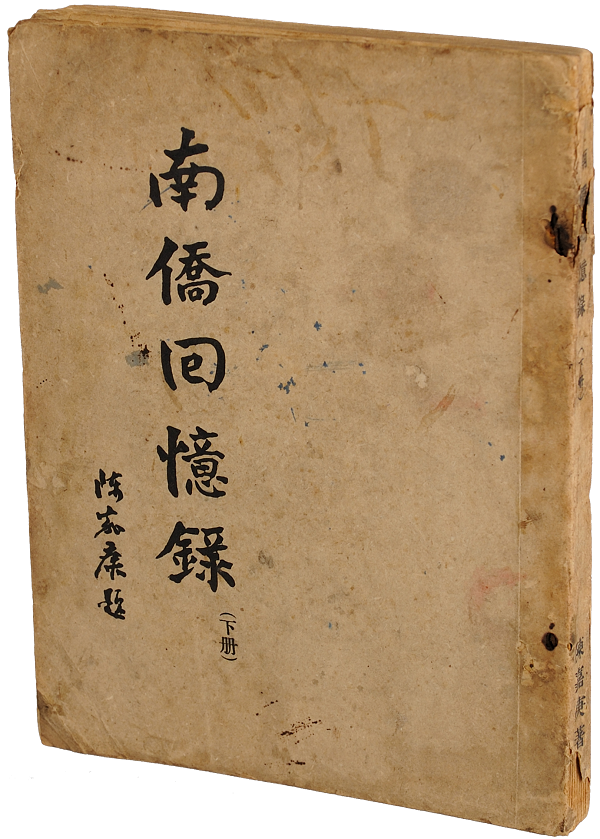 南僑回憶錄
（下册）
陈嘉庚題
南 憶錄（下册） 陳嘉庚著